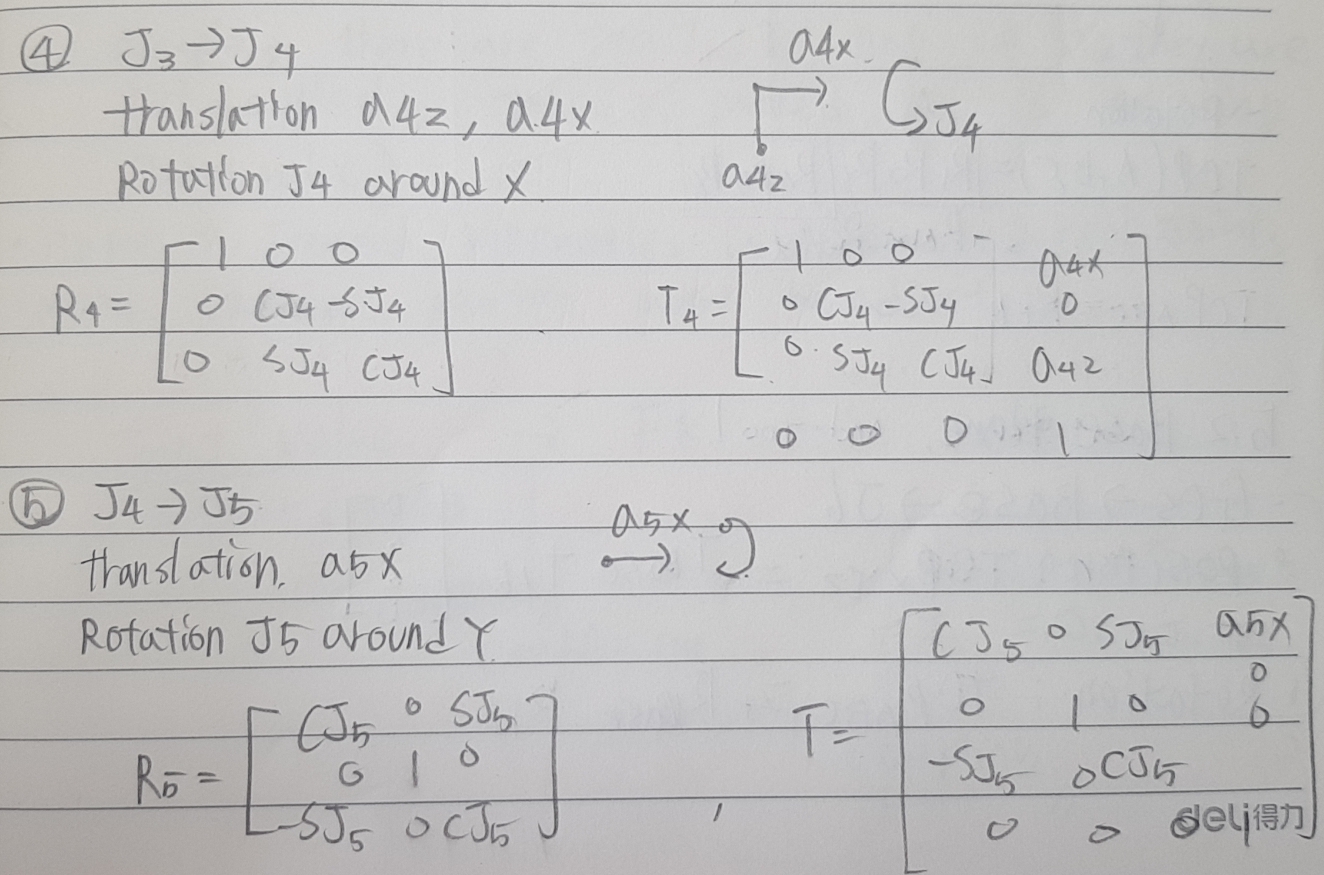 ④ J3→J4
translation a4z, a4x
Rotation J4 around X
a4x
J4
a4z
R4 =
1 0 0
0 CJ4 -SJ4
0 SJ4 CJ4
T4 =
1 0 0 a4x
0 CJ4 -SJ4 0
0 SJ4 CJ4 a4z
0 0 0 1
⑤ J4→J5
translation. a5x
Rotation J5 around Y
a5x
R5 =
CJ5 0 SJ5
0 1 0
-SJ5 0 CJ5
T =
CJ5 0 SJ5 a5x
0
0 1 0 0
-SJ5 0 CJ5
0 0 0
deli得力